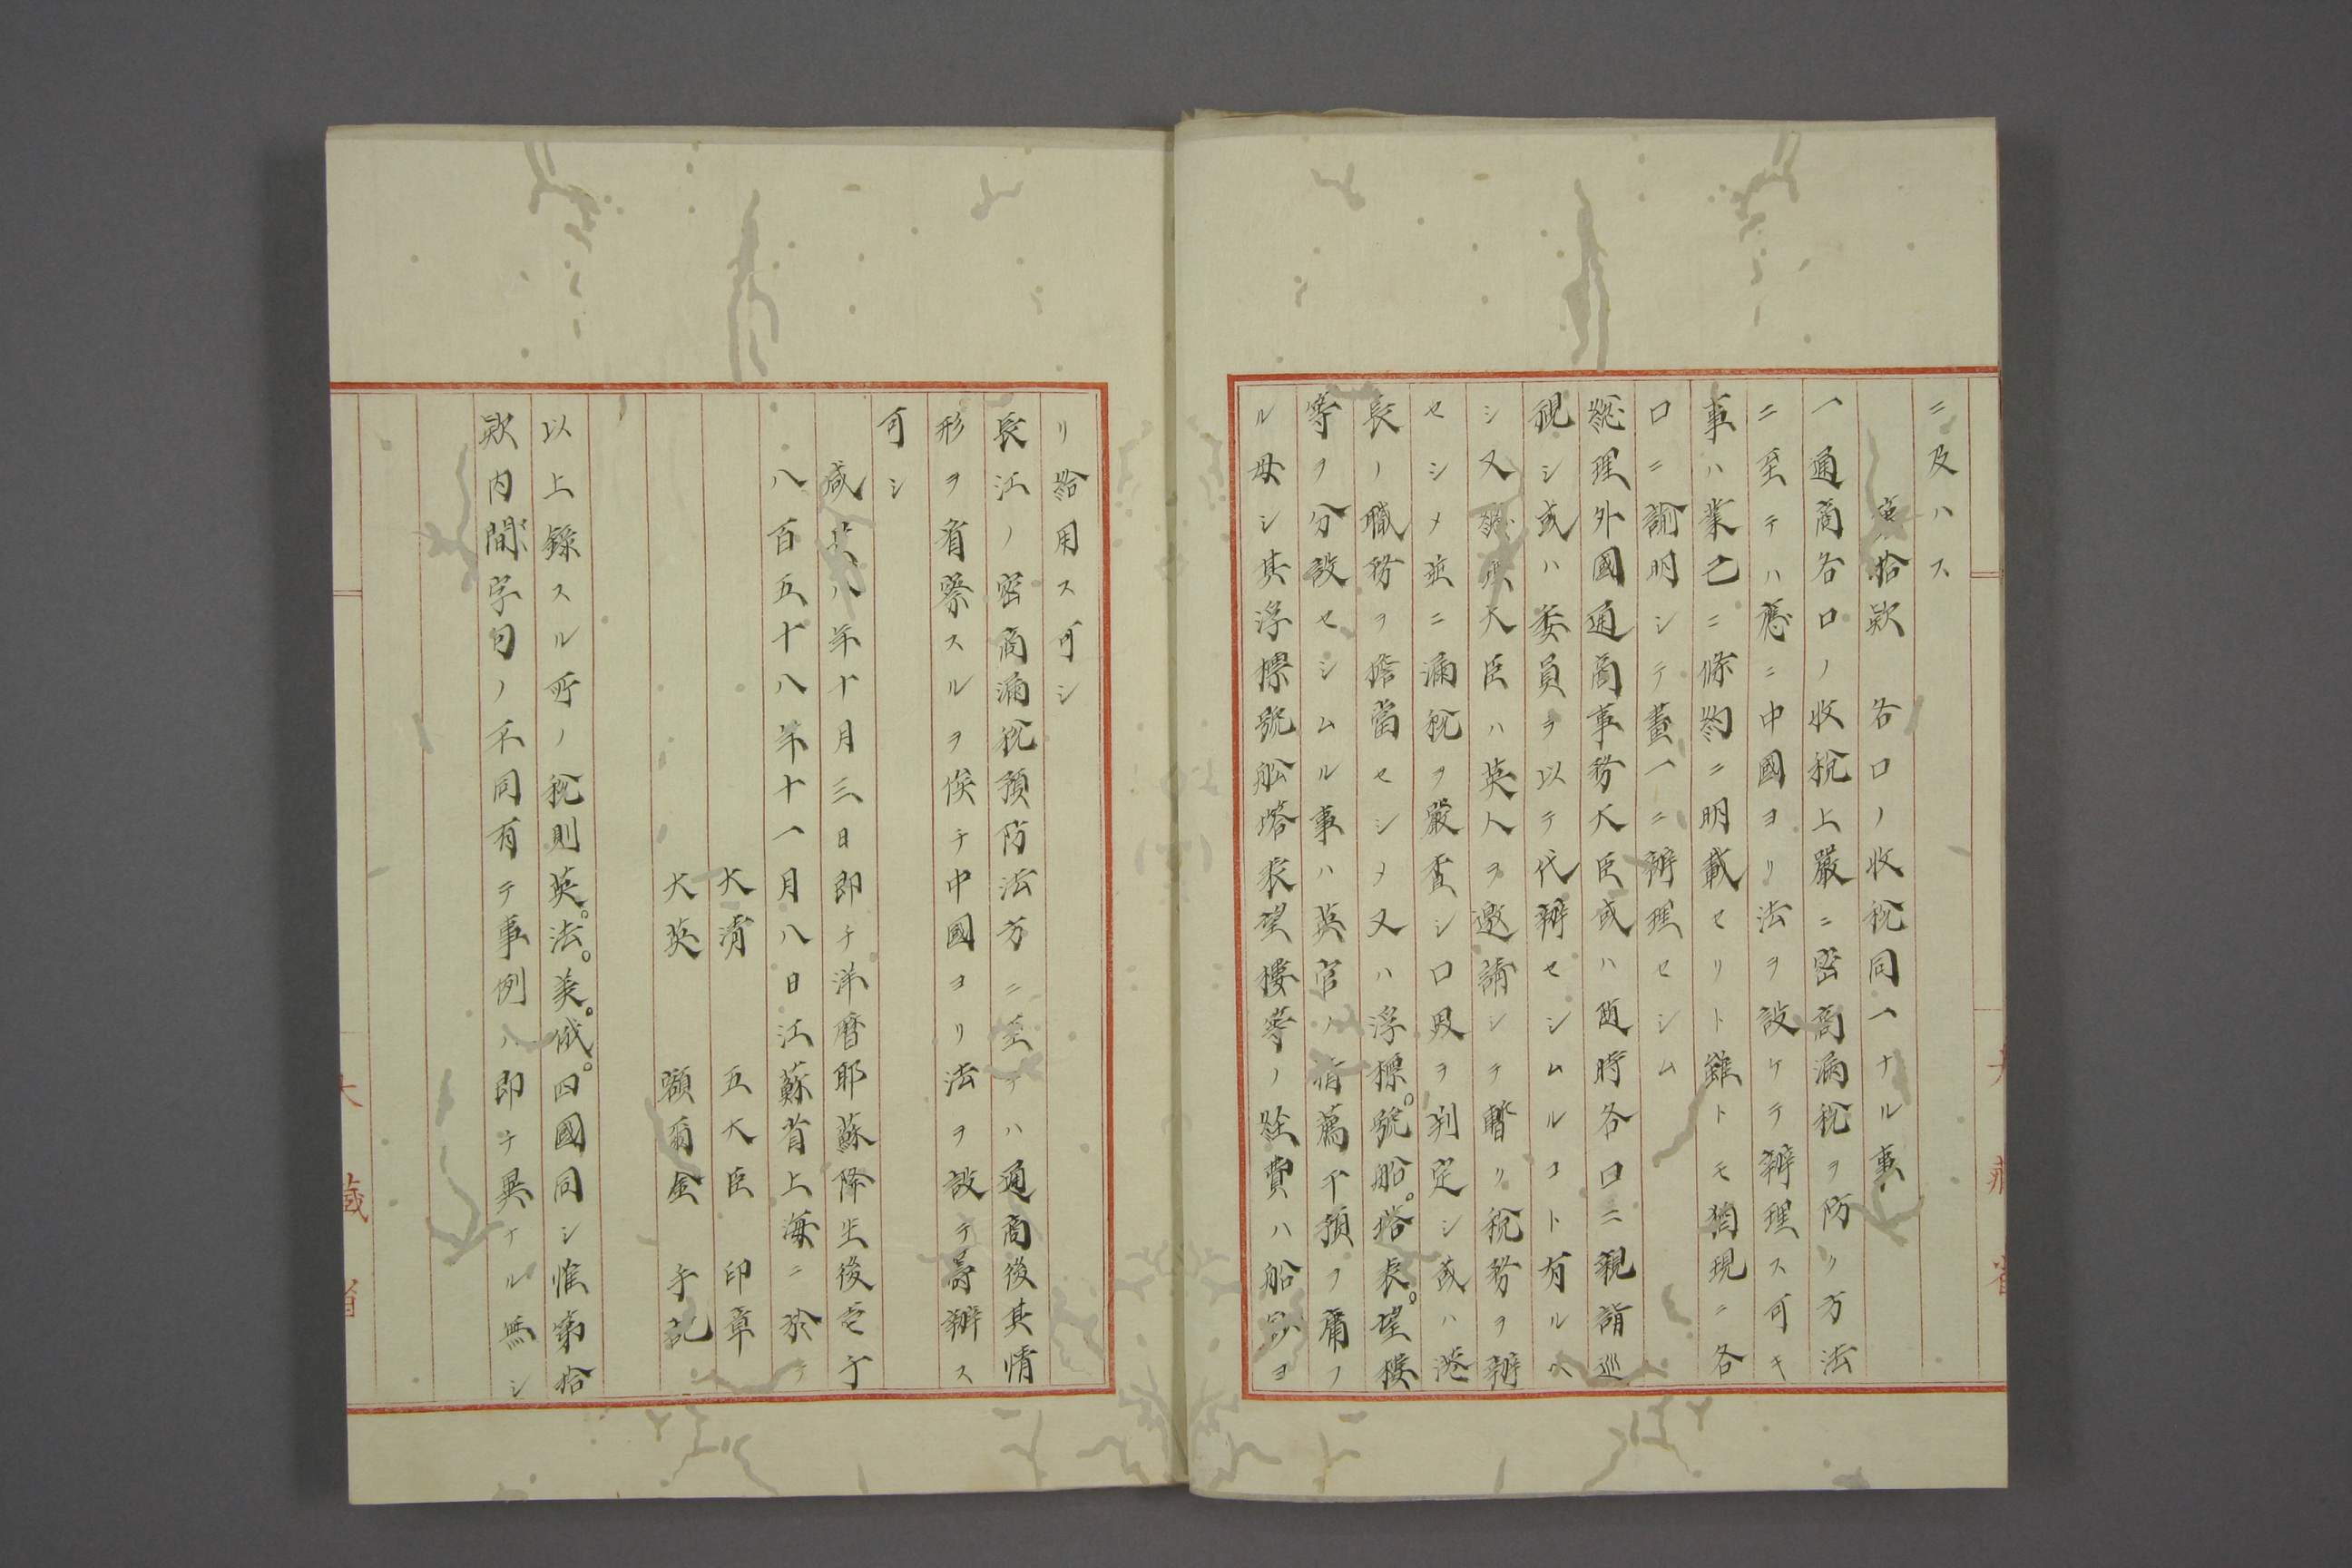 ニ及ハス
拾款　各口ノ收稅同一ナル事
一通商各口ノ收稅上嚴ニ密商漏稅ヲ防ク方法
ニ至テハ應ニ中國ヨリ法ヲ設ケテ辦理ス可キ
事ハ業已ニ條約ニ明載セリト雖トモ猶現ニ各
口ニ諭明シテ畫一ニ辦理セシム
總理外國通商事務大臣或ハ随時各口ニ親詣巡
視シ或ハ委員ヲ以テ代辦セシムルコト有ルヘ
シ又總理大臣ハ英人ヲ邀請シテ暫ク稅務ヲ辦
セシメ並ニ漏稅ヲ嚴查シ口界ヲ判定シ或ハ港
長ノ職務ヲ擔當セシメ又ハ浮樁。號船。塔表。望樓
等ヲ分設セシムル事ハ英官ノ指薦干預ヲ庸フ
ル毋シ其浮樁號船塔表望樓等ノ經費ハ船鈔ヨ
リ給用ス可シ
長江ノ密商漏稅預防法方ニ至テハ通商後其情
形ヲ省察スルヲ俟テ中國ヨリ法ヲ設テ尋辦ス
可シ
咸豐八年十月三日即チ洋曆耶蘇降生後壱千
八百五十八年十一月八日江蘇省上海ニ於テ
大淸　五大臣　印章
大英　額爾金　手記
以上錄スル所ノ稅則英。法。美。俄。四國同シ惟第拾
款內間字句ノ不同有テ事例ハ即チ異ナル無シ
大藏省
大藏省